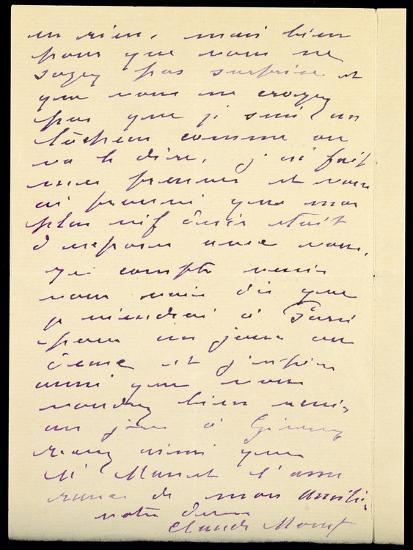 en rien, mais bien
pour que vous ne
soyez pas surprise et
que vous ne croyez
pas que je suis un
lâcheur comme on
va le dire, j'ai fait
mes preuves et vous
ai prouvé que mon
plus vif désir était
d'exposer avec vous.
Je compte venir
vous voir dès que
je viendrai à Paris
pour un jour ou
deux et j'espère
aussi que vous
voudrez bien venir
un jour à Giverny
ainsi que
Mr Manet l'assu
rance de mon amitié
votre dévoué
Claude Monet